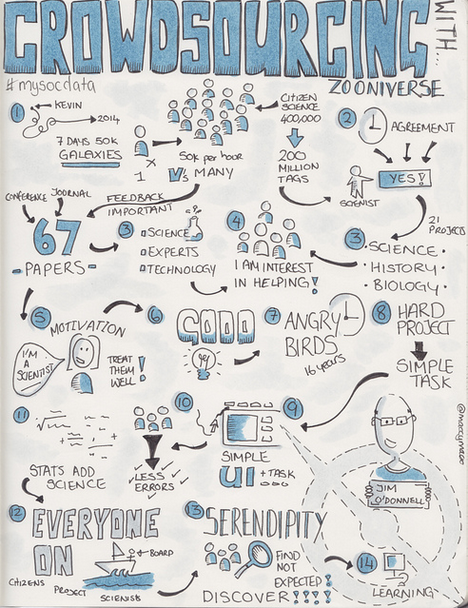 CROWDSOURCING
WITH...
ZOONIVERSE
#mysocdata
1
KEVIN
2014
7 DAYS 50K
GALAXIES
1 X
V/s
50K per hour
MANY
CITIZEN
SCIENCE
400,000
200
MILLION
TAGS
2
AGREEMENT
YES!
SCIENTIST
21
PROJECTS
CONFERENCE
JOURNAL
67
PAPERS
FEEDBACK
IMPORTANT
3
SCIENCE
EXPERTS
TECHNOLOGY
4
I AM INTEREST
IN HELPING!
3
SCIENCE
HISTORY
BIOLOGY
5
MOTIVATION
I'M
A
SCIENTIST
TREAT
THEM
WELL!
6
7
ANGRY
BIRDS
16 years
8
HARD
PROJECT
SIMPLE
TASK
@moocynaloo
11
STATS ADD
SCIENCE
10
LESS
ERRORS
9
SIMPLE
UI + TASK
JIM
O'DONNELL
12
EVERYONE
ON
BOARD
CITIZENS
PROJECT
SCIENTISTS
13
SERENDIPITY
FIND
NOT
EXPECTED!
DISCOVER!!!!
14
LEARNING